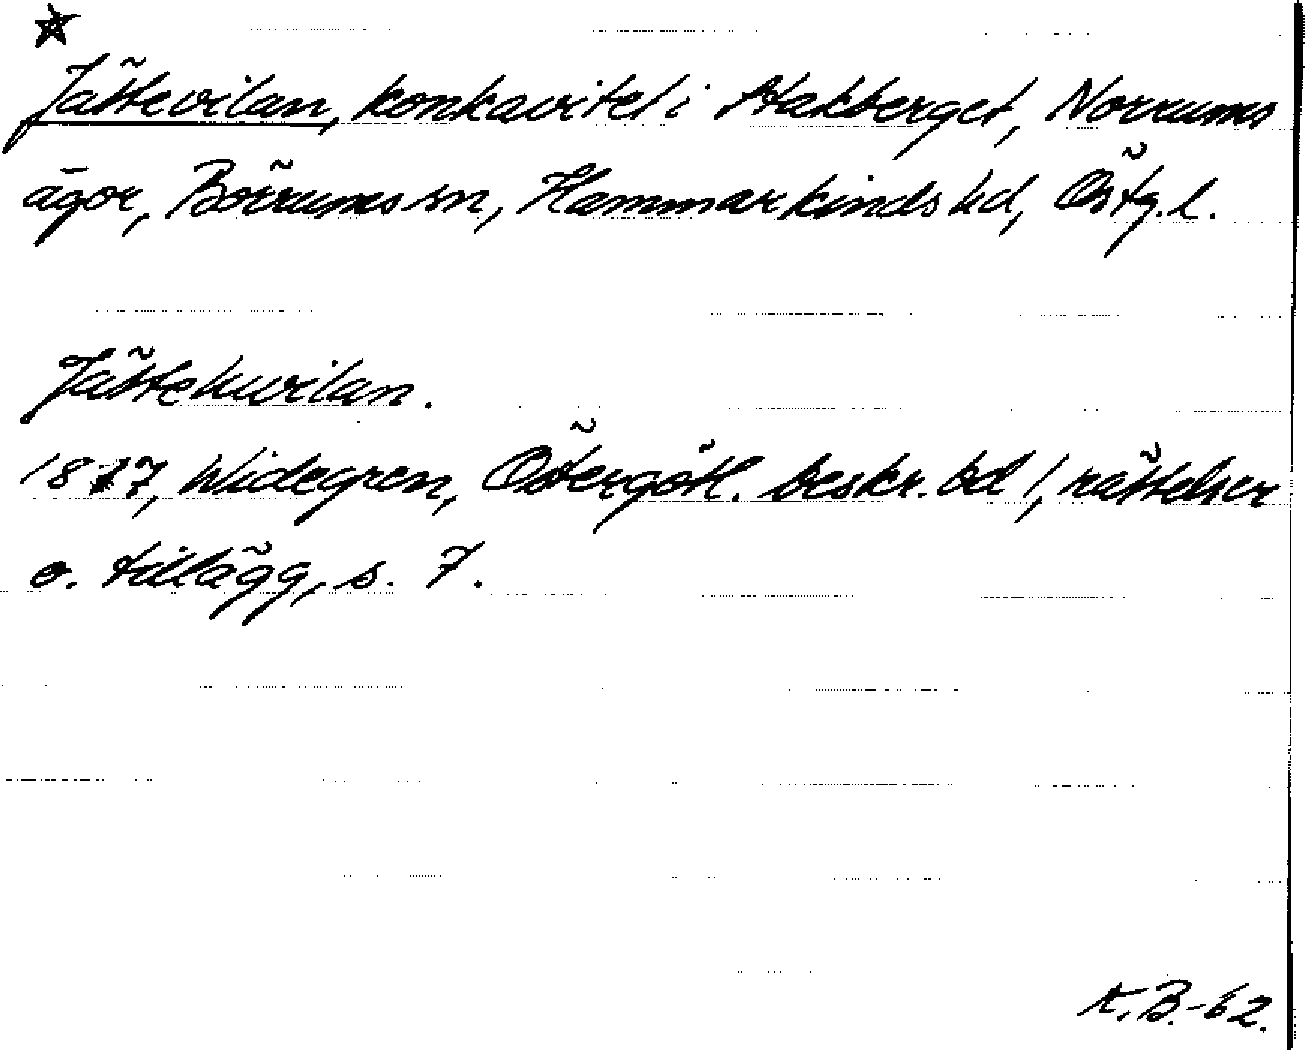 Jättevilan, konkavitet i Stakberget, Norrums
ägor, Börrums sn, Hammarkinds hd, Östg. l.
Jättehwilan.
1817, Widegren, Östergötl. beskr. bd 1, rättelser
o. tillägg, s. 7.
K.B.-62.